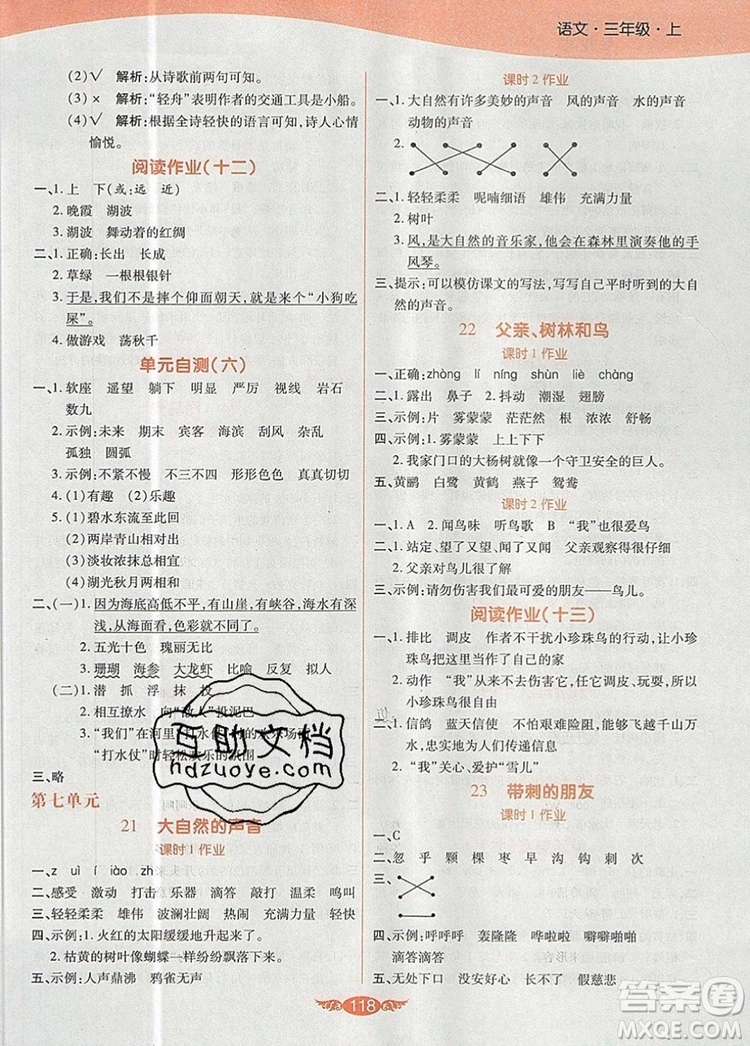 语文·三年级·上
(2)√ 解析:从诗歌前两句可知。
(3)× 解析:“轻舟”表明作者的交通工具是小船。
(4)√ 解析:根据全诗轻快的语言可知,诗人心情
愉悦。
阅读作业(十二)
一、1. 上 下(或:远 近)
2. 晚霞 湖波
3. 湖波 舞动着的红绸
二、1. 正确:长出 长成
2. 草绿 一根根银针
3. 于是,我们不是摔个仰面朝天,就是来个“小狗吃
屎”。
4. 做游戏 荡秋千
单元自测(六)
一、1. 软座 遥望 躺下 明显 严厉 视线 岩石
数九
2. 示例:未来 期末 宾客 海滨 刮风 杂乱
孤独 圆弧
3. 示例:不紧不慢 三三四四 形形色色 真真切切
4. (1)有趣 (2)乐趣
5. (1)碧水东流至此回
(2)两岸青山相对出
(3)淡妆浓抹总相宜
(4)湖光秋月两相和
二、(一)1. 因为海底高低不平,有山崖,有峡谷,有深有
浅,从海面看,色彩就不同了。
2. 五光十色 瑰丽无比
3. 珊瑚 海参 大龙虾 比喻 反复 拟人
(二)1. 潜 抓 浮 抹 投
2. 相互撩水 向“敌人”投泥巴
3. “我们”在河里
“打水仗”时紧张欢乐的氛围
三、略
第七单元
21 大自然的声音
课时1作业
一、z uì í iào zh
二、感受 激动 打击 乐器 滴答 敲打 温柔 鸣叫
三、轻轻柔柔 雄伟 波澜壮阔 热闹 充满力量 轻快
四、示例:1. 火红的太阳缓缓地升起来了。
2. 枯黄的树叶像蝴蝶一样纷纷飘落下来。
五、示例:人声鼎沸 鸦雀无声
课时2作业
一、1. 大自然有许多美妙的声音 风的声音 水的声音
动物的声音
2.
二、1. 轻轻柔柔 呢喃细语 雄伟 充满力量
2. 树叶
3. 风,是大自然的音乐家,他会在森林里演奏他的手
风琴。
三、提示:可以模仿课文的写法,写写自己平时听到的大自
然的声音。
22 父亲、树林和鸟
课时1作业
一、正确:zhòng lí níng shùn liè chàng
二、1. 露出 鼻子 2. 抖动 潮湿 翅膀
三、示例:片 雾蒙蒙 茫茫然 根 浓浓 舒畅
四、示例:1. 雾蒙蒙 上上下下
2. 我家门口的大杨树就像一个守卫安全的巨人。
五、黄鹂 白鹭 黄鹤 燕子 鸳鸯
课时2作业
一、1. A 2. 闻鸟味 听鸟歌 B “我”也很爱鸟
二、1. 站定、望了又望、闻了又闻 父亲观察得很仔细
2. 父亲对鸟儿很了解
三、示例:请勿伤害我们最可爱的朋友——鸟儿。
阅读作业(十三)
一、1. 排比 调皮 作者不干扰小珍珠鸟的行动,让小珍
珠鸟把这当作了自己的家
2. 动作 “我”从不去伤害它,任它调皮、玩耍,可见
小珍珠鸟很自由
二、1. 信鸽 蓝天信使 不怕艰难险阻,能够飞越千山万
水,忠诚地为人们传递信息
2. “我”关心、爱护“雪儿”
23 带刺的朋友
课时1作业
一、C
二、忽 乎 颗 棵 枣 早 沟 钩 刺 次
三、
四、示例:呼呼呼 轰隆隆 哗啦啦 噼噼啪啪
滴答滴答
五、无处下口 没安好心 假慈悲
118
互助文档
hdzuoye.com
答案圈
MXQE.COM